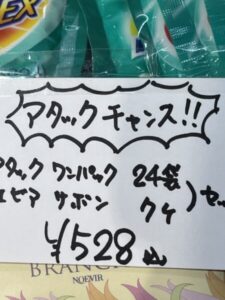 EX
アタックチャンス!!
アタック ワンパック 24袋
ピア サボン 7ケ
セッ
¥528
BRANC
NOEVIR